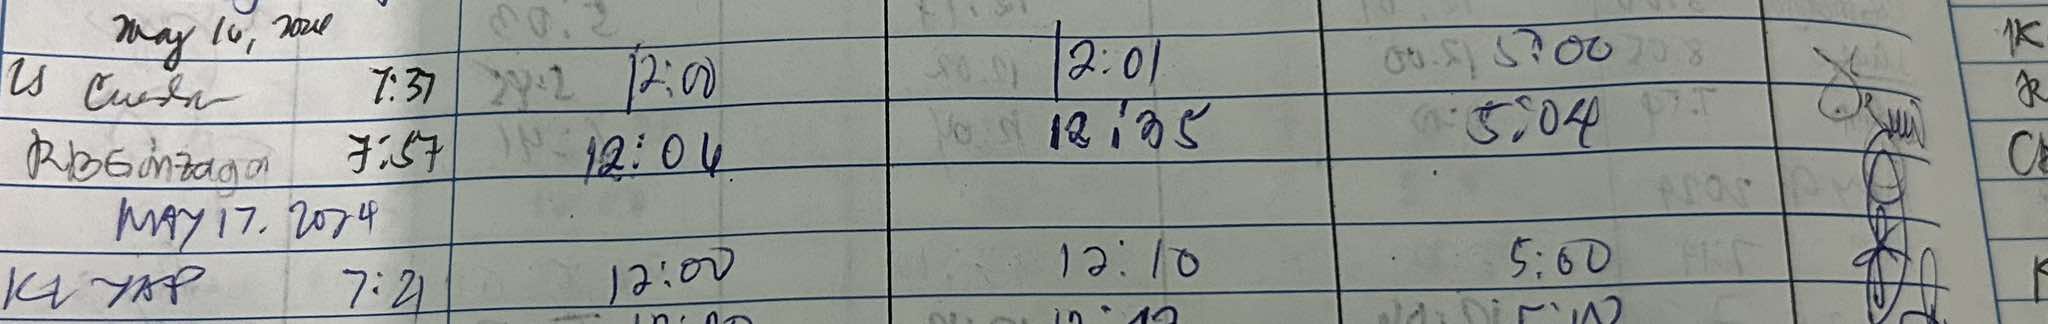 May 16, 2024
7:37 12:00 12:01 5:00
RB Ginzaga 7:57 12:04 12:35 5:04
MAY 17. 2024
KL YAP 7:21 12:00 12:10 5:00